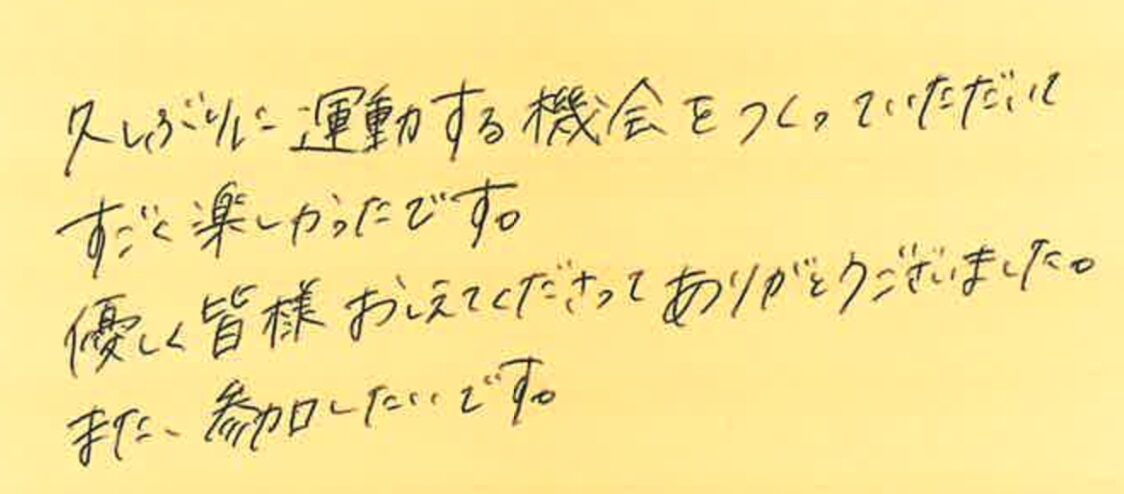 久しぶりに運動する機会をつくっていただいて
すごく楽しかったです。
優しく皆様おしえてくださってありがとうございました。
また、参加したいです。